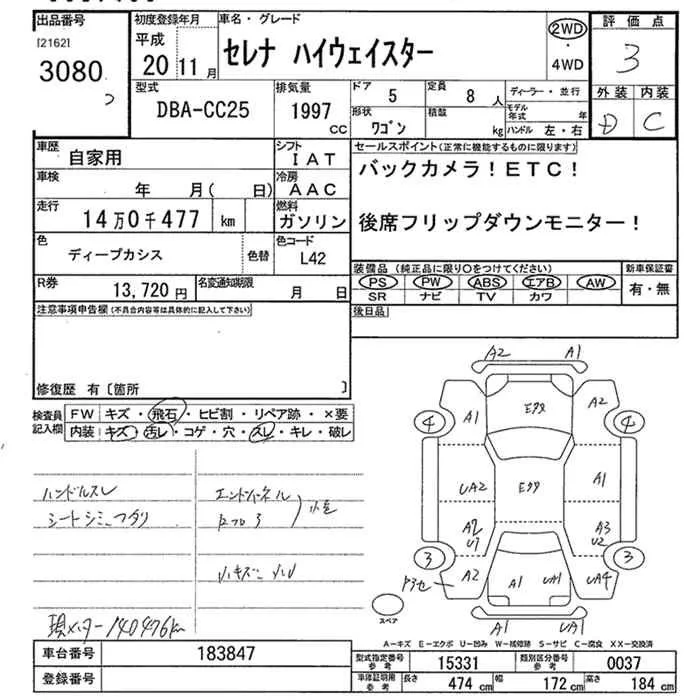 出品番号
[2162]
3080
初度登録年月
平成
20 11月
車名・グレード
セレナ ハイウェイスター
2WD
・
4WD
評価点
3
外装 内装
D C
型式
DBA-CC25
排気量
1997
CC
ドア 5
定員 8 人
形状 ワゴン
積載 kg
ディーラー・並行
モデル年式 年
ハンドル 左・右
車歴 自家用
シフト IAT
車検 年 月( 日)
冷房 AAC
走行 14万0千477 km
燃料 ガソリン
色 ディープカシス 色替
色コード L42
R券 13,720円
名変通知期限 月 日
セールスポイント(正常に機能するものに限ります)
バックカメラ!ETC!
後席フリップダウンモニター!
装備品 (純正品に限り○をつけてください)
新車保証書
PS PW ABS エアB AW
有・無
SR ナビ TV カワ
後日品
注意事項申告欄(不具合内容等は具体的に記入して下さい)
修復歴 有〔箇所 〕
検査員記入欄
FW キズ・飛石・ヒビ割・リペア跡・×要
内装 キズ・汚レ・コゲ・穴・スレ・キレ・破レ
ハンドルスレ
シートシミ
エンドパネル
小キズ
現メーター140476km
A2 A1
4 A1 A2 4
UA2 A1
A2 A3
U2
3 3
A2 A1 UA1 UA4
スペア
A1 UA1
A-キズ E-エクボ U-凹み W-補修跡 S-サビ C-腐食 XX-交換済
車台番号 183847
登録番号
型式指定番号 参考 15331
類別区分番号 参考 0037
車体証明用 参考 長さ 474 cm 幅 172 cm 高さ 184 cm